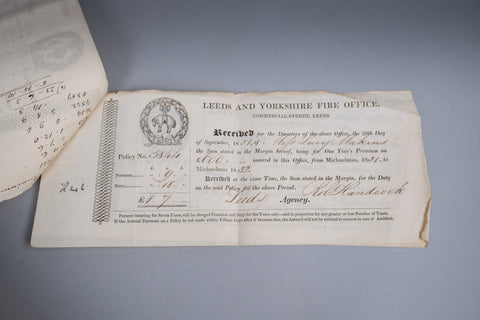 LEEDS AND YORKSHIRE FIRE OFFICE,
COMMERCIAL-STREET, LEEDS.
Received for the Directors of the above Office, the 29th Day
of September, 1831, of Miss Lucy Makens
the Sum stated in the Margin below, being for One Year's Premium on
£600 — insured in this Office, from Michaelmas, 1831, to
Michaelmas 1832.
Received at the same Time, the Sum stated in the Margin, for the Duty
on the said Policy for the above Period.
Robt Handcock
Leeds Agency.
Policy No.
Premium, 9
Duty, 18
£1 7
Persons insuring for Seven Years, will be charged Premium and Duty for Six Years only—and in proportion for any greater or less Number of Years.
If the Annual Payment on a Policy be not made within Fifteen Days after it becomes due, the Assured will not be entitled to recover in case of Accident.